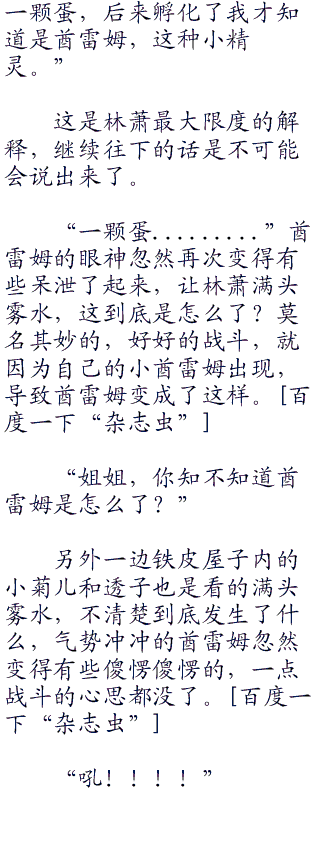 一颗蛋，后来孵化了我才知
道是酋雷姆，这种小精
灵。”
这是林萧最大限度的解
释，继续往下的话是不可能
会说出来了。
“一颗蛋.........”酋
雷姆的眼神忽然再次变得有
些呆泄了起来，让林萧满头
雾水，这到底是怎么了？莫
名其妙的，好好的战斗，就
因为自己的小酋雷姆出现，
导致酋雷姆变成了这样。[百
度一下“杂志虫”]
“姐姐，你知不知道酋
雷姆是怎么了？”
另外一边铁皮屋子内的
小菊儿和透子也是看的满头
雾水，不清楚到底发生了什
么，气势冲冲的酋雷姆忽然
变得有些傻愣傻愣的，一点
战斗的心思都没了。[百度一
下“杂志虫”]
“吼！！！！”